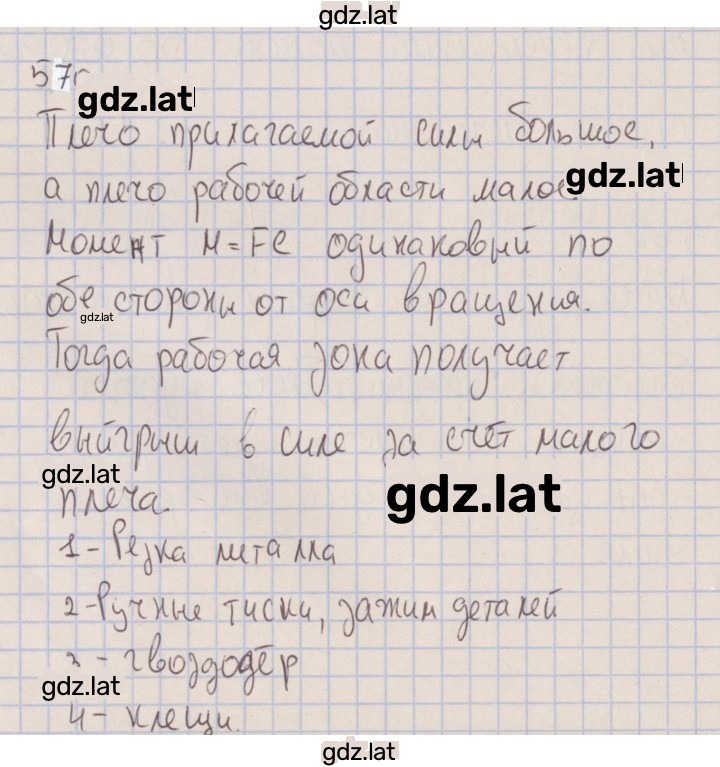 gdz.lat
57г
gdz.lat
Плечо прилагаемой силы большое,
а плечо рабочей области малое.
gdz.lat
Момент M=Fl одинаковый по
обе стороны от оси вращения.
gdz.lat
Тогда рабочая зона получает
выйгрыш в силе за счёт малого
gdz.lat
плеча.
gdz.lat
1-Резка металла
2-Ручные тиски, зажим деталей
3-гвоздодёр
gdz.lat
4-клещи.
gdz.lat